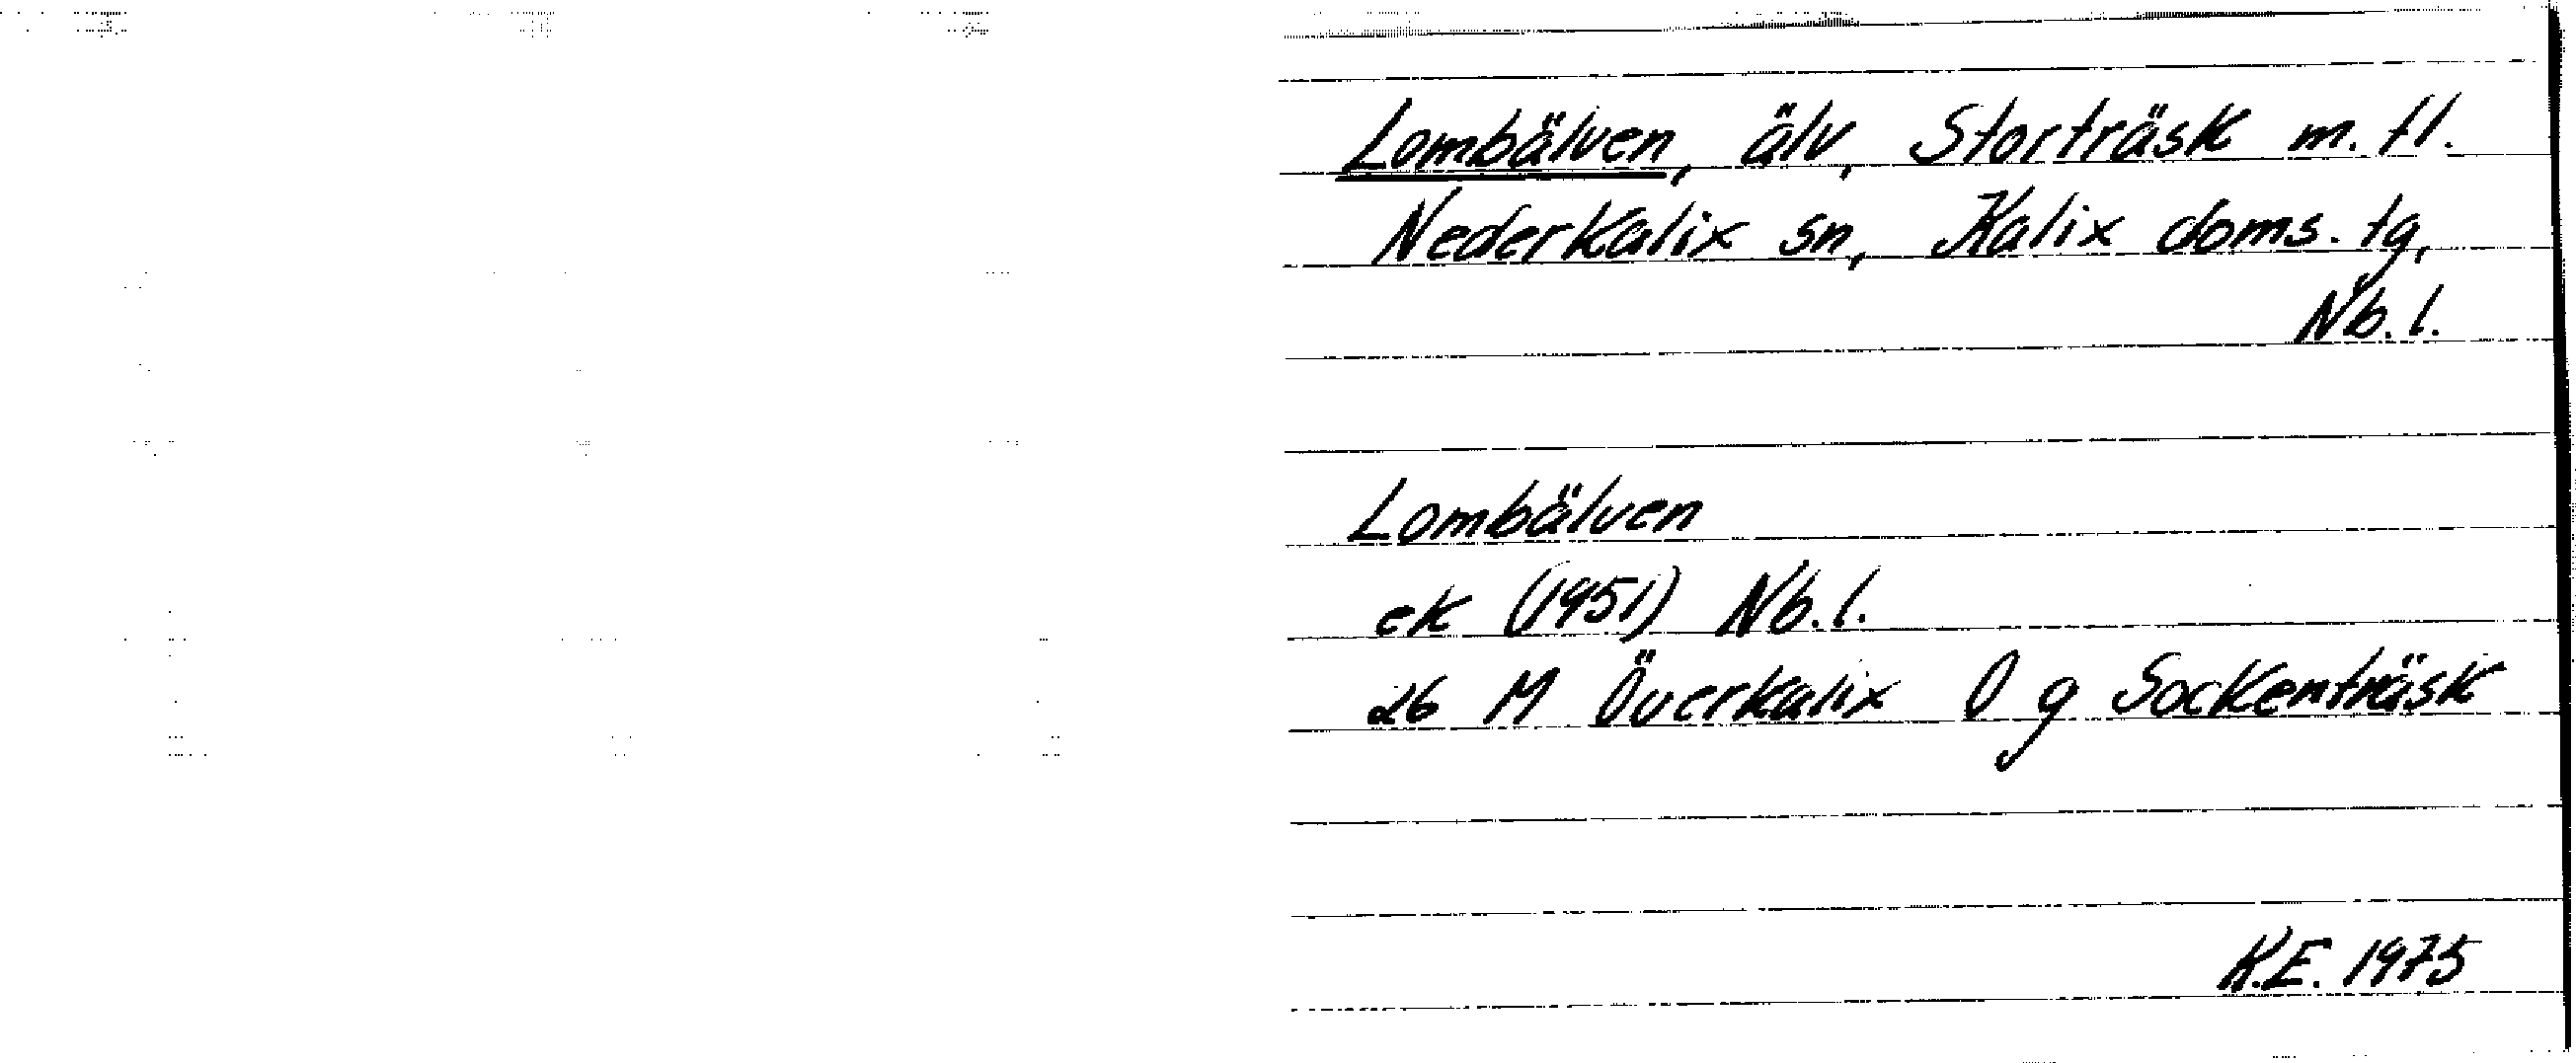 Lombälven, älv, Storträsk m. fl.
Nederkalix sn, Kalix doms. tg,
Nb. l.
Lombälven
ek (1951) Nb. l.
26 M Överkalix O g Sockenträsk
K.E. 1975